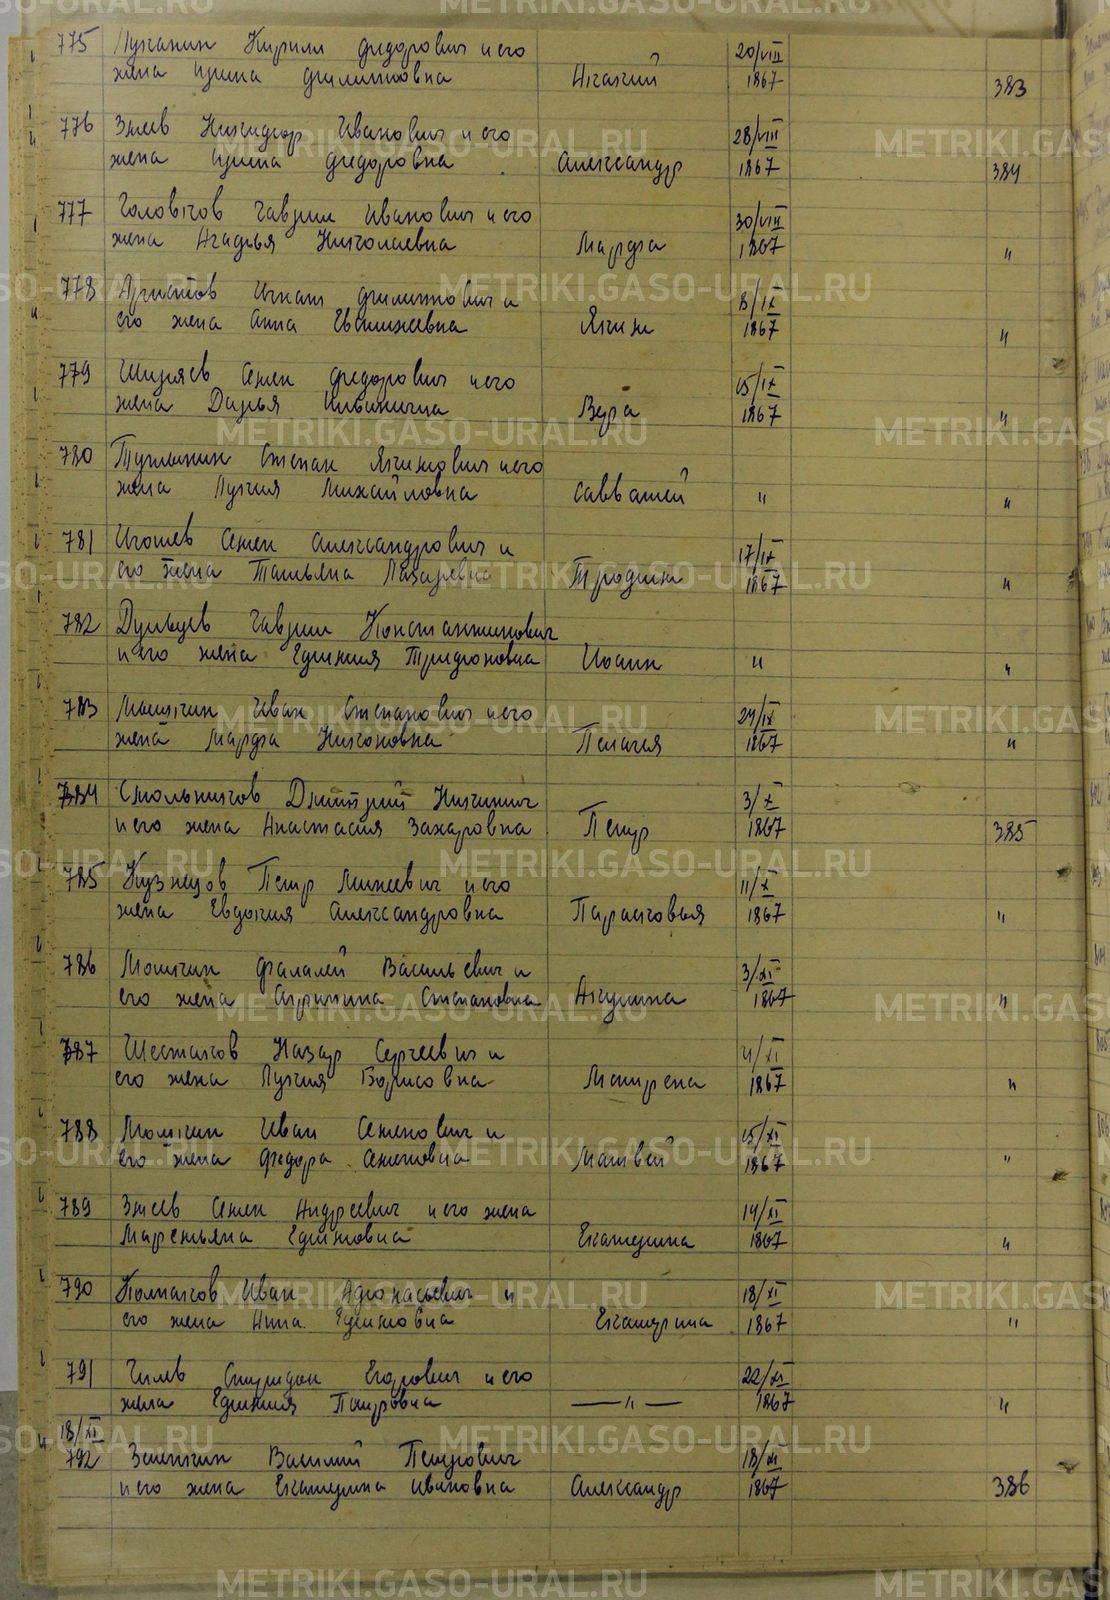 775 Лучанин Кирилл Федорович и его 20/VIII
жена Ирина Филипповна 1867 383
776 Змеев Никифор Иванович и его 28/VIII
жена Ирина Федоровна Александр 1867 384
777 Головков Гаврил Иванович и его 30/VIII
жена Агафья Николаевна Марфа 1867 "
778 Игнат Филиппович и 8/IX
его жена Анна Евтихеевна Яким 1867 "
779 Ширяев Семен Федорович и его 15/IX
жена Дарья Вера 1867 "
780 Степан Якимович и его
жена Лукия Михайловна Савватей " "
781 Игошев Семен Александрович и 17/IX
его жена Татьяна Лазаревна Трофим 1867 "
782 Гаврил Константинович
и его жена Ефимия Трифоновна Иоанн " "
783 Машкин Иван Степанович и его 24/IX
жена Марфа Никоновна Пелагея 1867 "
784 Стольников Дмитрий Никитич 3/X
и его жена Анастасия Захаровна Петр 1867 385
785 Кузнецов Петр Михеевич и его 11/X
жена Евдокия Александровна Парасковья 1867 "
786 Фалалей Васильевич и 3/XI
его жена Степановна Акулина 1867 "
787 Шестаков Назар Сергеевич и 4/XI
его жена Лукия Борисовна Матрена 1867 "
788 Иван Семенович и 15/XI
его жена Федора Семеновна Матвей 1867 "
789 Змеев Семен Андреевич и его жена 14/XI
Маремьяна Ефимовна Екатерина 1867 "
790 Колпаков Иван Афонасьевич и 18/XI
его жена Анна Ефимовна Екатерина 1867 "
791 Спиридон Егорович и его 22/XI
жена Ефимия Петровна — " — 1867 "
18/XI
792 Василий Петрович 18/XI
и его жена Екатерина Ивановна Александр 1867 386
METRIKI.GASO-URAL.RU